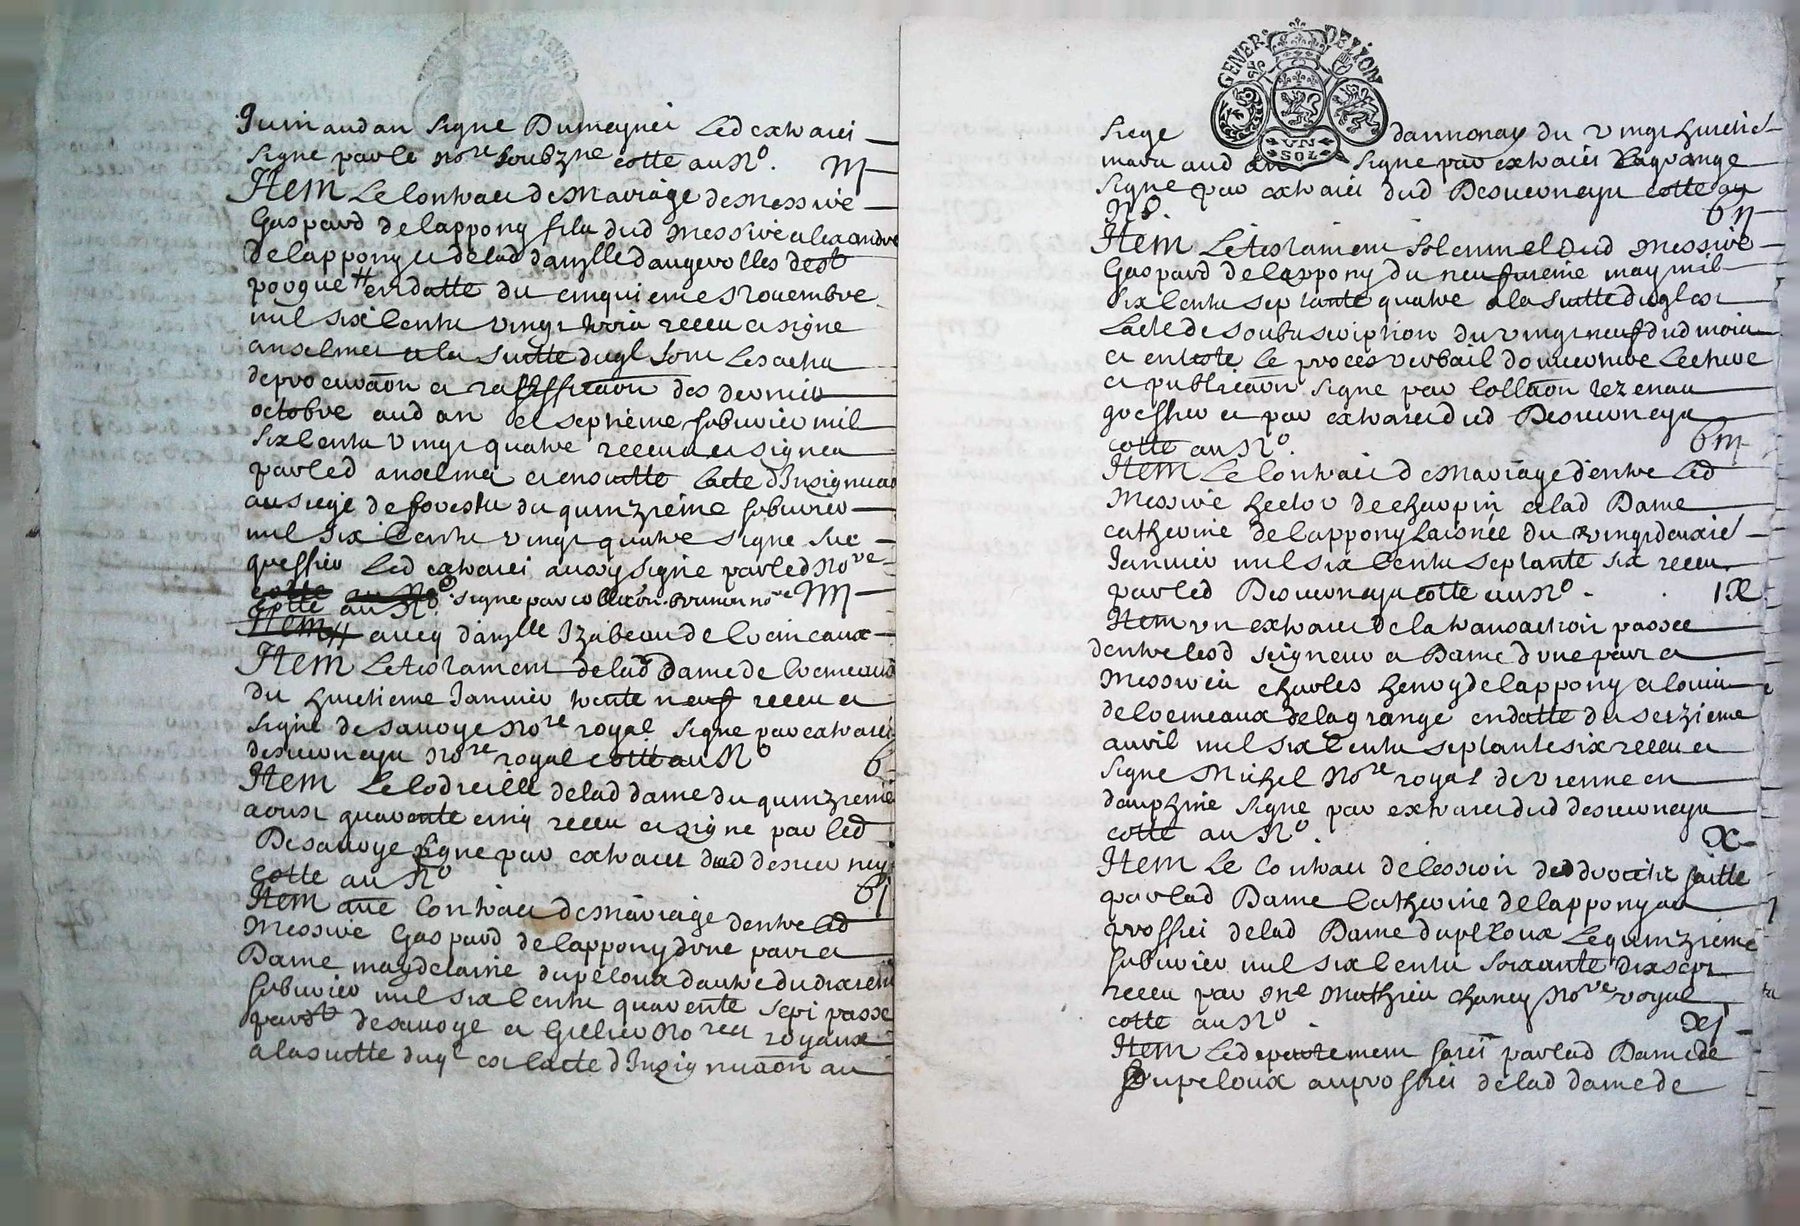 Juin audan signe Dumeynei Led extraict
signe par le nore soubzne cotte au No. III
Item Le Contract de Mariage de Messire
Gaspard de lappony fils dud Messire alexandre
de lappony et de lad dazlle daugerolles de st
pogue # en datte du cinquieme Novembre
mil six Cents vingt trois receu et signe
anselmet a la suitte duql sont Les actes
de procuraon et rattifficaon des dernier
octobre aud an et septieme febvrier mil
six Cents vingt quatre receus et signes
par led anselmet et ensuitte Lacte dInsignuaon
au siege de forests du quinzieme febvrier
mil six Cents vingt quatre signe
greffier Led extraict aussy signe par led Nore
cotte au No. signe par collaon nore IIII
Item avecq dazlle Izabeau de
Item Le testament de lad Dame de
du huictieme Janvier trente neuf receu et
signe de savoye Nore royal signe par extraict
Nore royal cotte au No 6
Item Le Codicille de lad dame du quinzieme
aoust quarente cinq receu et signe par led
De savoye signe par extraict dud
cotte au No 6j
Item une Contract de mariage dentre led
Messire Gaspard de lappony dune part et
Dame magdelaine dupeloux dautre du dixieme
febvrier mil six Cents quarente sept passe
par st de savoye et Grelier Nores royaux
a la suitte duql est lacte dInsignuaon au
GENER. DE LION
VN SOL
siege dannonay du vingt huictie
mars aud an signe par extraict Lagrange
signe par extraict dud
No. 6ij
Item Le testament solennel dud Messire
Gaspard de lappony du neufvieme may mil
six Cents septante quatre a la suitte duql est
Lacte de soubscription du vingt neuf dud mois
et enteste le proces verbail douverture Lecture
et publicaon signe par Collaon rezenau
greffier et par extraict dud
cotte au No. 6iij
Item Le Contract de Mariage dentre Led
Messire hector de charpin et lad Dame
catherine de lappony Laisnee du vingt deuxie
Janvier mil six Cents septante six receu
par led cotte au No. IX
Item un extraict de la transaction passee
dentre lesd seigneur et Dame dune part et
Messieurs charles henry de lappony et louis
de de la grange en datte du seizieme
avril mil six Cents septante six receu et
signe Michel Nore royal de vienne en
dauphine signe par extraict dud
cotte au No. X
Item Le Contract de Cession des droicts faitte
par lad Dame Catherine de lappony au
proffict de lad Dame dupeloux Le quinzieme
febvrier mil six Cents soixante dix sept
receu par Me Mathieu chaney Nore royal
cotte au No. XI
Item Le departement faict par lad Dame de
Dupeloux au proffict de lad dame de